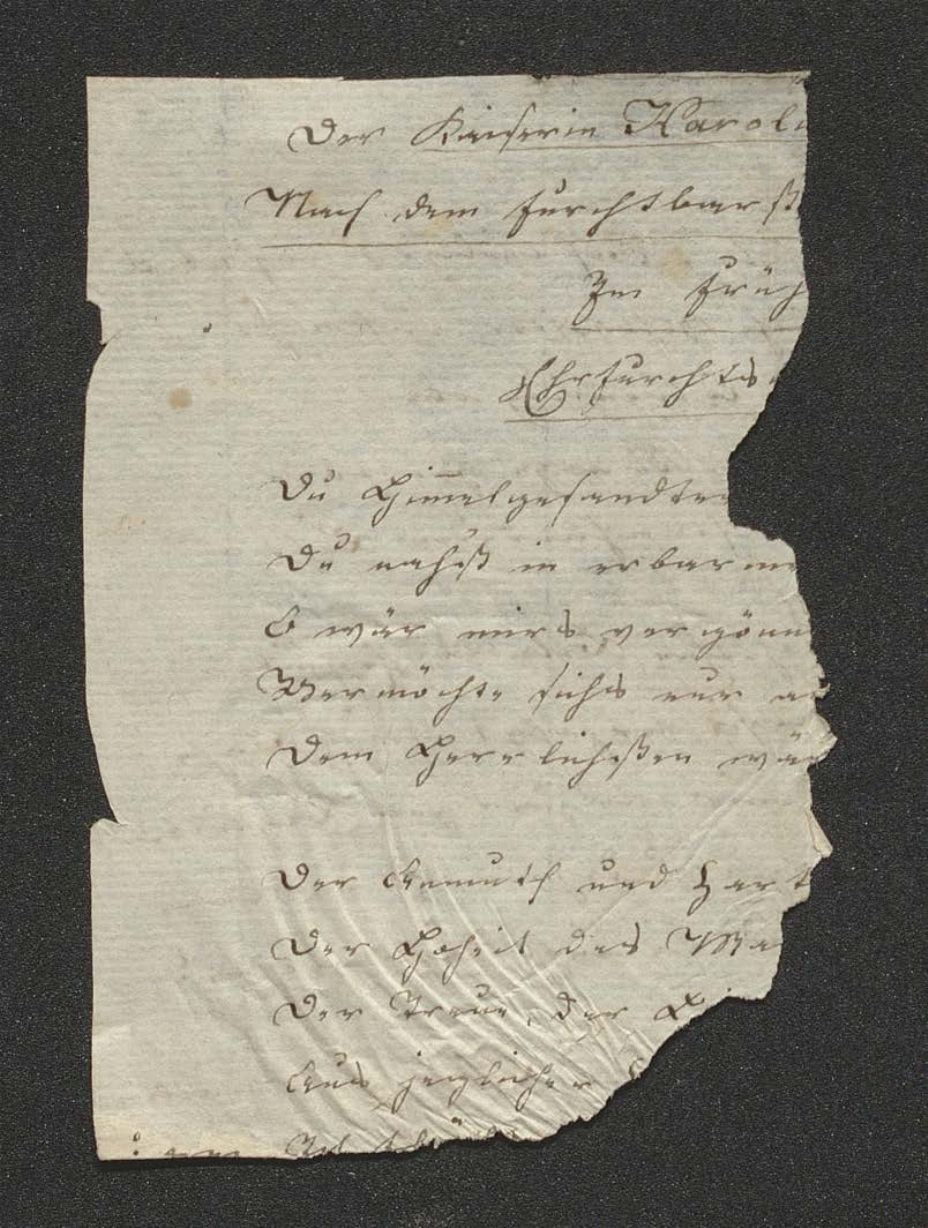 Der Kaiserin Karoli
Nach dem furchtbarst
Im Früh
Ehrfurchts
Du Him̅elgesandte
Du nahst in erbarme
O wär mirs vergönn
Vermöchte sichs nur
Dem Herrlichsten wär
Der Anmuth und Zart
Der Hoheit des Ma
Der Treue, der
Aus jeglicher